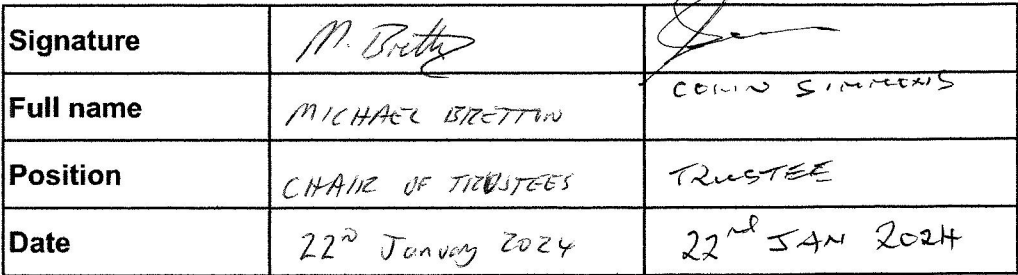 Signature M. Bretty
Full name MICHAEL BRETTON COLIN SIMMONS
Position CHAIR OF TRUSTEES TRUSTEE
Date 22nd January 2024 22nd JAN 2024